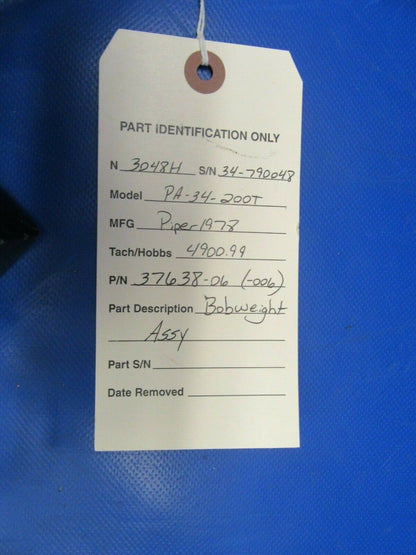 PART IDENTIFICATION ONLY
N 3048H S/N 34-790048
Model PA-34-200T
MFG Piper 1978
Tach/Hobbs 4900.99
P/N 37638-06 (-006)
Part Description Bobweight
Assy
Part S/N
Date Removed